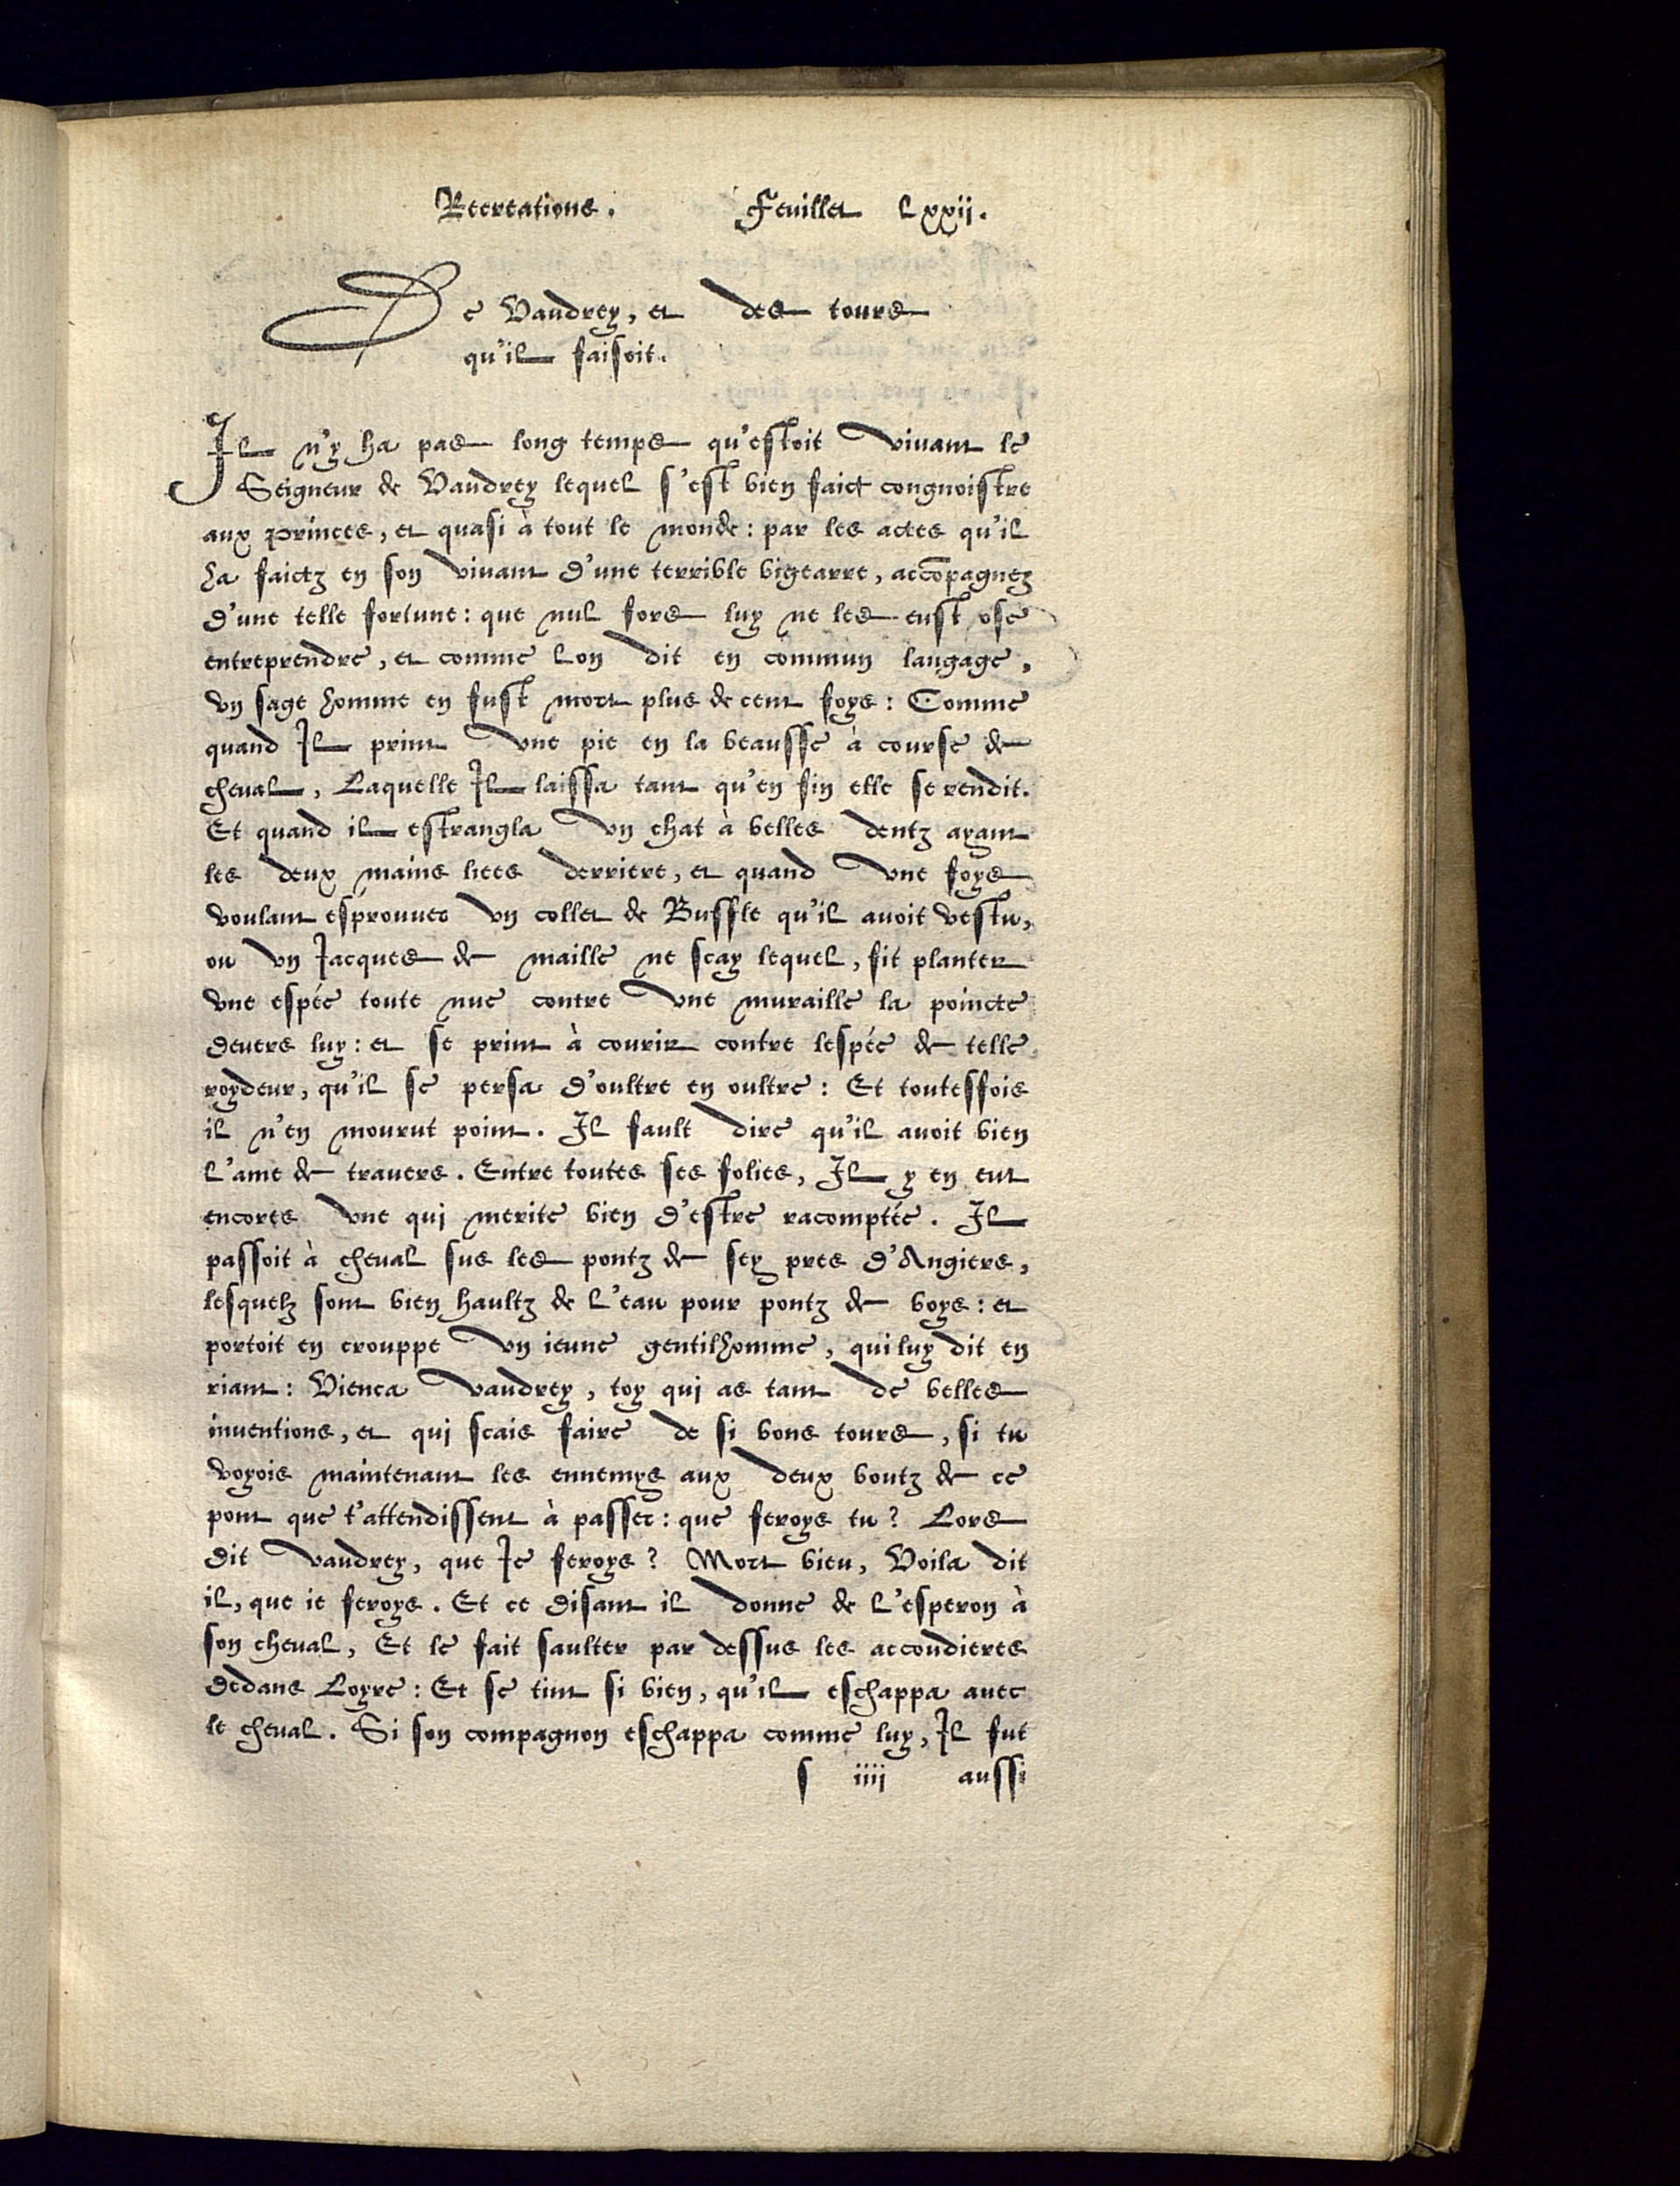 Recreations. Feuillet Lxxii.
De Vaudrey, et des tours
qu'il faisoit.
Il n'y ha pas long temps qu'estoit vivant le
Seigneur de Vaudrey lequel s'est bien faict congnoistre
aux princes, et quasi à tout le monde: par les actes qu'il
ha faictz en son vivant d'une terrible bigearre, accōpagnez
d'une telle fortune: que nul fors luy ne les eust osé
entreprendre, et comme lon dit en commun langage,
vn sage homme en fust mort plus de cent foys: Comme
quand Il print vne pie en la beausse à course de
cheval, Laquelle Il laissa tant qu'en fin elle se rendit.
Et quand il estrangla vn chat à belles dentz ayant
les deux mains liees derriere, et quand vne foys
voulant esprouuer vn collet de Buffle qu'il auoit vestu,
ou vn Jacques de maille ne scay lequel, fit planter
vne espée toute nue contre vne muraille la poincte
devers luy: et se print à courir contre lespée de telle
roydeur, qu'il se persa d'oultre en oultre: Et toutesfois
il n'en mourut point. Il fault dire qu'il auoit bien
l'ame de trauers. Entre toutes ses folies, Il y en eut
encores vne qui merite bien d'estre racomptée. Il
passoit à cheval sus les pontz de sey pres d'Angiers,
lesquelz sont bien haultz de l'eau pour pontz de boys: et
portoit en crouppe vn ieune gentilhomme, qui luy dit en
riant: Vienca vaudrey, toy qui as tant de belles
inuentions, et qui scais faire de si bons tours, si tu
voyois maintenant les ennemys aux deux boutz de ce
pont que t'attendissent à passer: que feroys tu? Lors
dit vaudrey, que Je feroys? Mort bieu, Voila dit
il, que ie feroys. Et ce disant il donne de l'esperon à
son cheval, Et le fait saulter par dessus les accoudieres
dedans Loyre: Et se tint si bien, qu'il eschappa auec
le cheval. Si son compagnon eschappa comme luy, Il fut
s iiii aussi